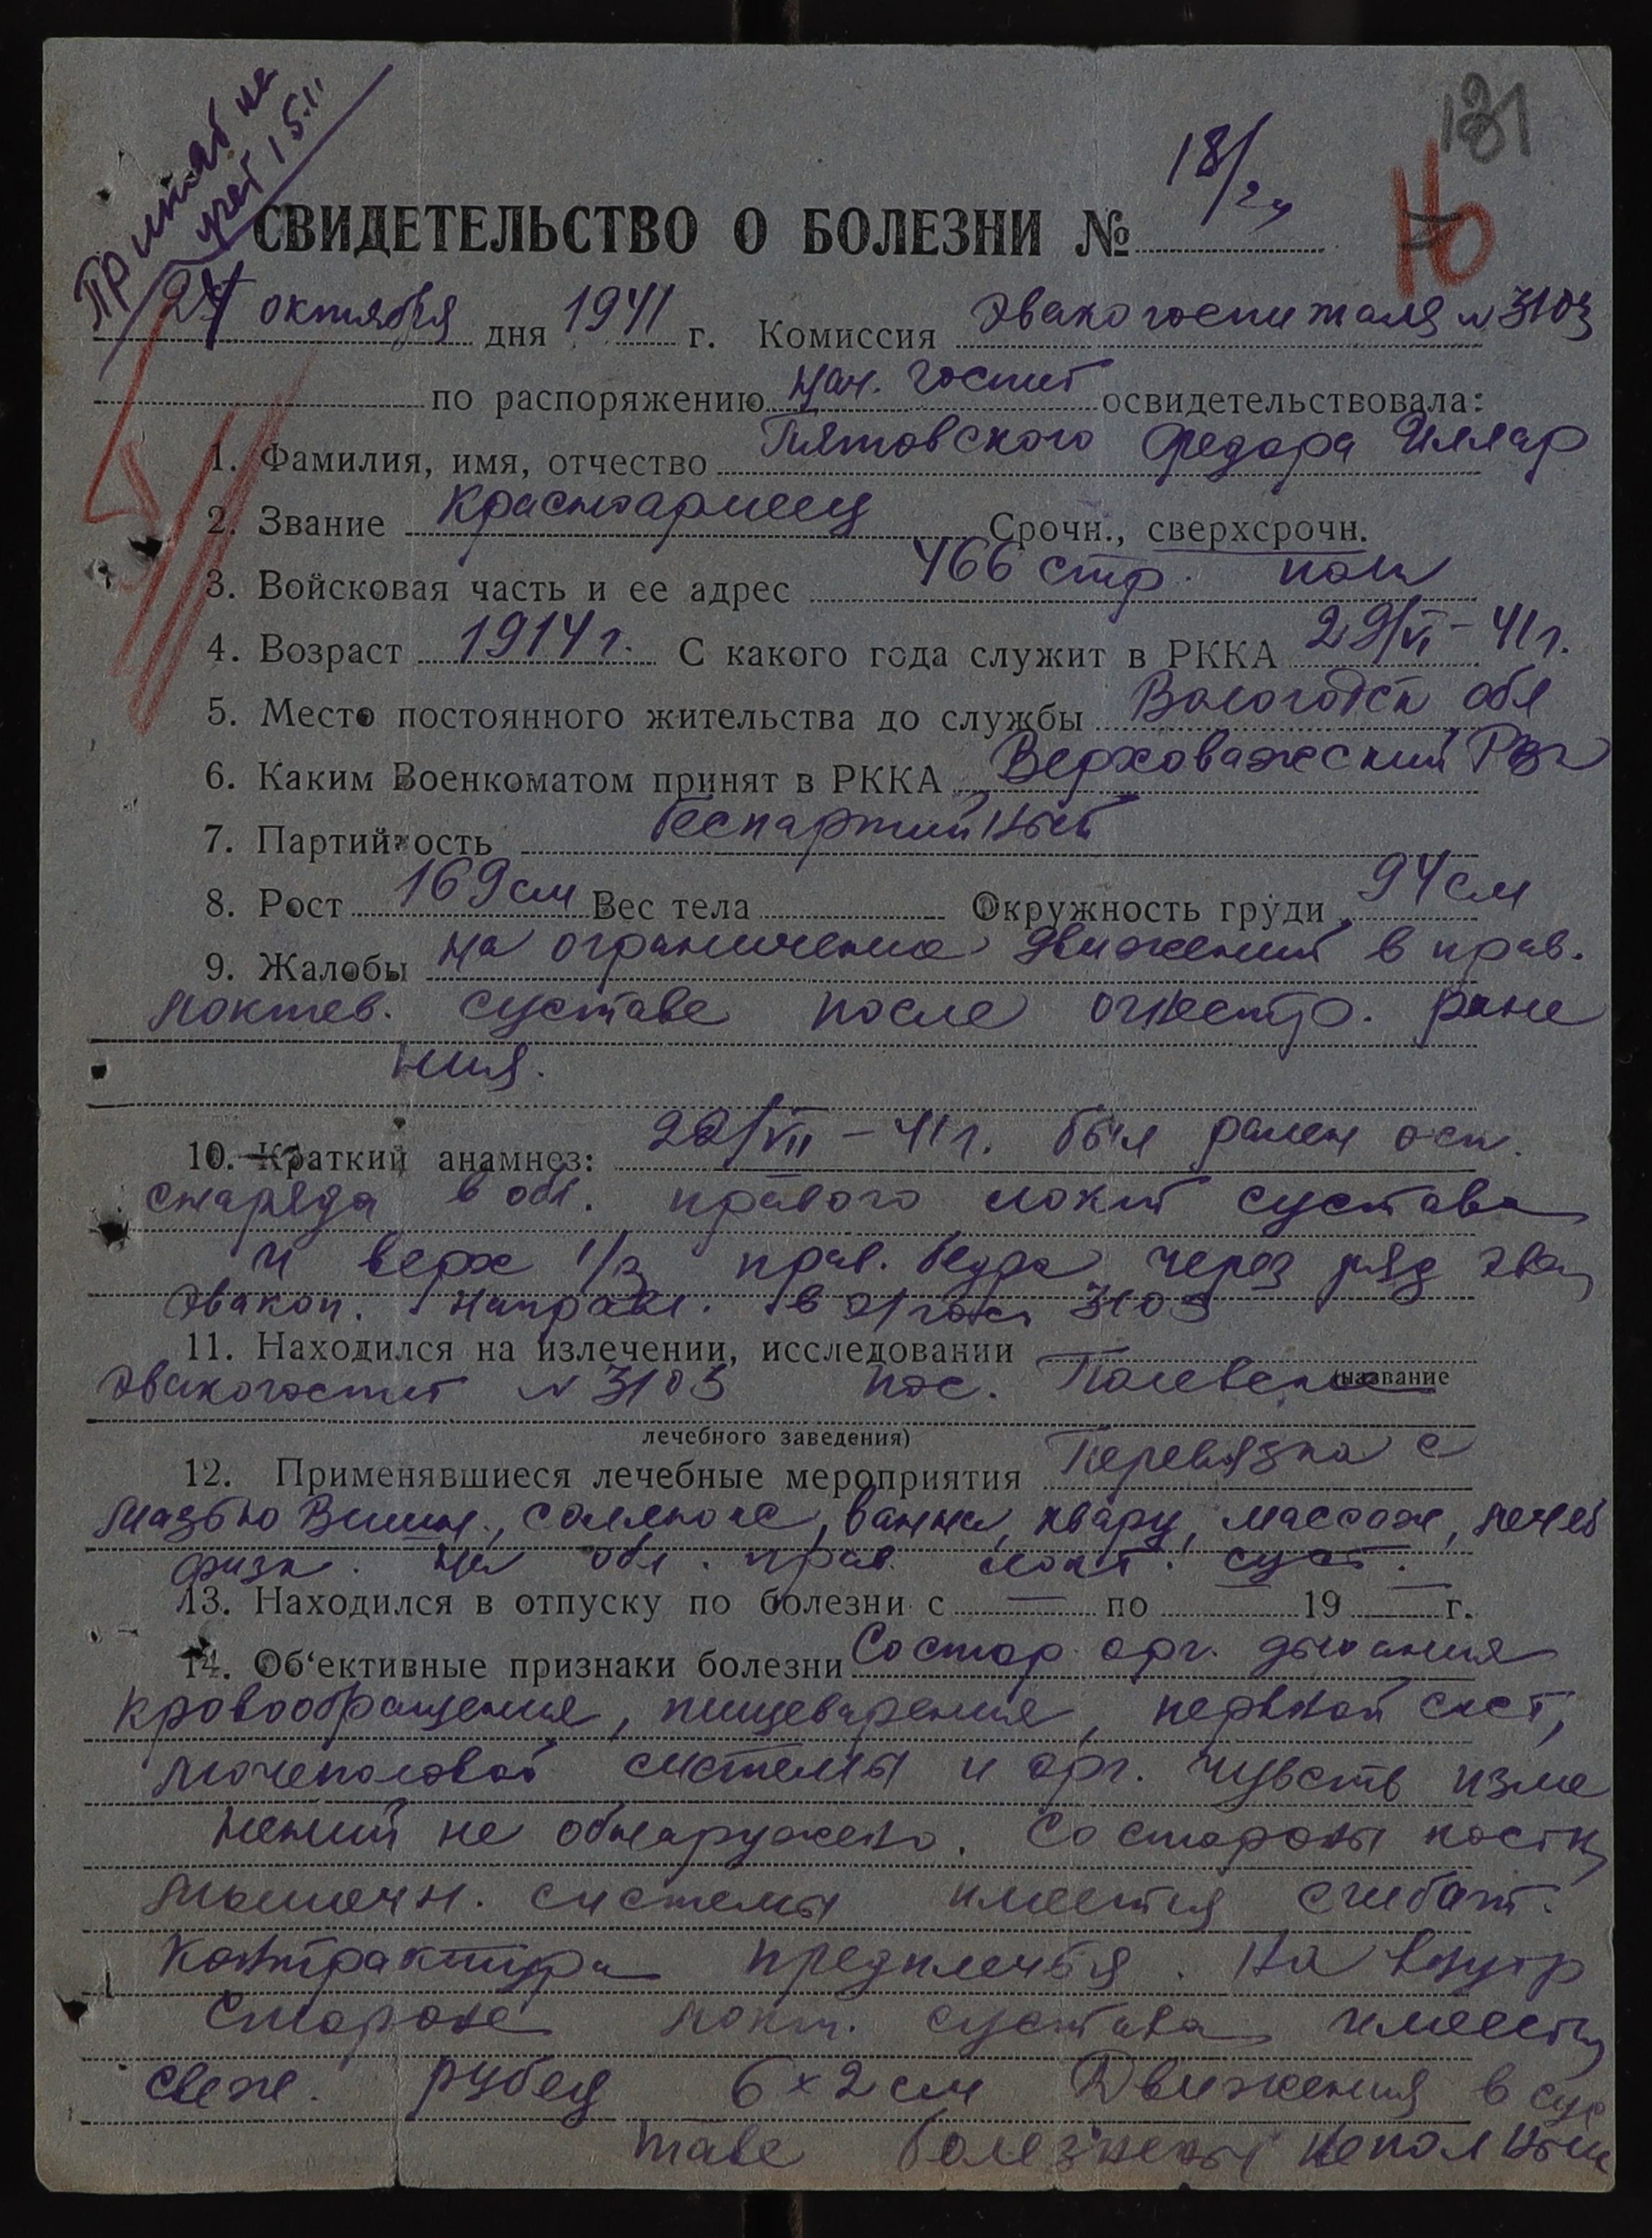 Принят на
учет 15.11
181
18/24
Ю
СВИДЕТЕЛЬСТВО О БОЛЕЗНИ №
24 октября дня 1941 г. Комиссия Эвакогоспиталя N 3103
по распоряжению нач. госпит освидетельствовала:
1. Фамилия, имя, отчество Пятовского Федора Иллар
2. Звание Красноармеец Срочн., сверхсрочн.
3. Войсковая часть и ее адрес 466 стр. полк
4. Возраст 1914 г. С какого года служит в РККА 29/VI – 41 г.
5. Место постоянного жительства до службы Вологодск обл
6. Каким Военкоматом принят в РККА Верховажский РВК
7. Партийность беспартийный
8. Рост 169 см Вес тела Окружность груди 94 см
9. Жалобы на ограничение движений в прав.
локтев. суставе после огнестр. ране
ния.
10. Краткий анамнез: 22/VII – 41 г. был ранен оск.
снаряда в обл. правого локт сустава
и верх 1/3 прав. бедра через ряд эва
эвакоп. направл. в э/госп 3103
11. Находился на излечении, исследовании
Эвакогоспит N 3103 пос. Полевск (название
лечебного заведения)
12. Применявшиеся лечебные мероприятия Перевязка с
мазью Вишн., соллюкс, ванна, кварц, массаж, лечеб
физк. на обл. прав. локт. суст.
13. Находился в отпуску по болезни с — по — 19 — г.
14. Об‘ективные признаки болезни Со стор. орг. дыхания
кровообращения, пищеварения, нервной сист,
мочеполовой системы и орг. чувств изме
нений не обнаружено. Со стороны костн
мышечн. системы имеется сгибат.
контрактура предплечья. На внутр
стороне локт. сустава имеется
свеж. рубец 6 × 2 см Движения в сус
таве болезнены неполным